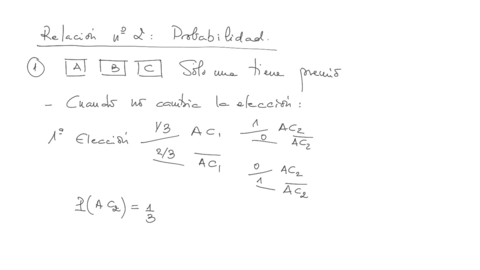 Relación nº 2: Probabilidad.
① A B C Sólo una tiene premio
- Cuando no cambia la elección:
1ª Elección 1/3 AC₁ 1 AC₂
0 \overline{AC₂}
2/3 \overline{AC₁} 0 AC₂
1 \overline{AC₂}
P(AC₂) = 1/3